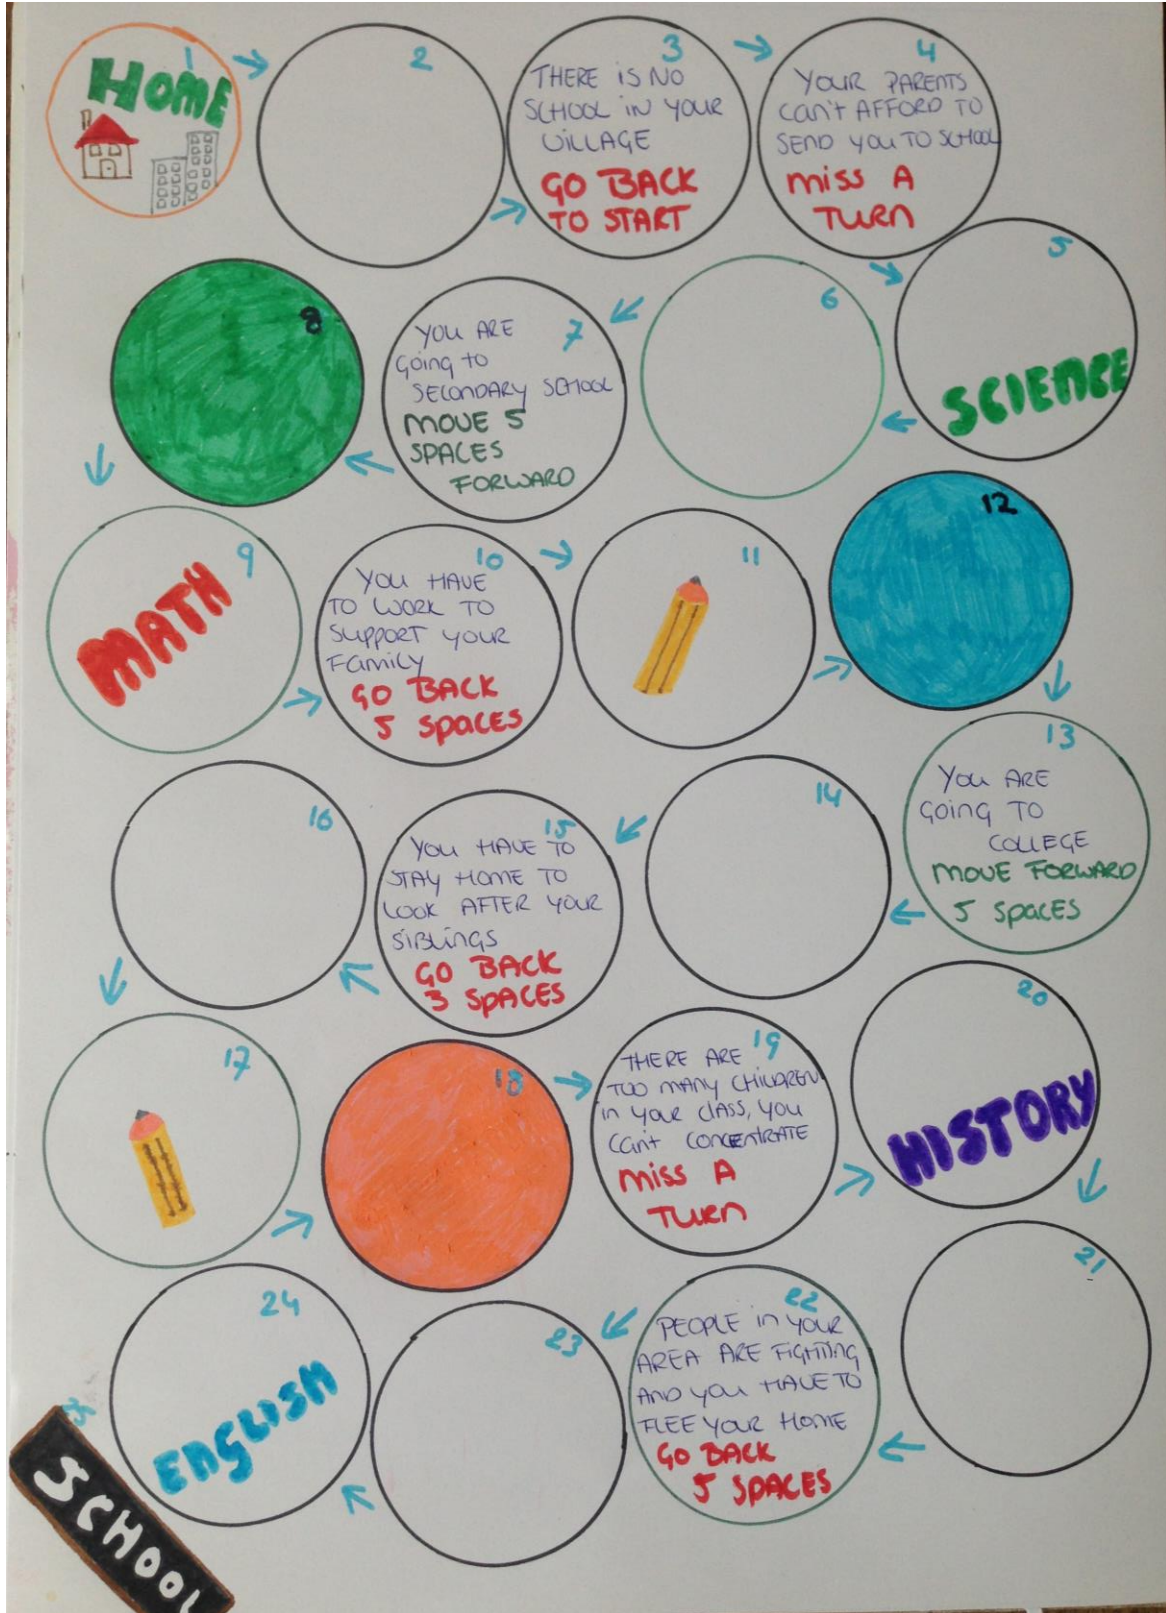 1
HOME
2
3
THERE IS NO
SCHOOL IN YOUR
VILLAGE
GO BACK
TO START
4
YOUR PARENTS
CAN'T AFFORD TO
SEND YOU TO SCHOOL
MISS A
TURN
5
SCIENCE
6
7
YOU ARE
GOING TO
SECONDARY SCHOOL
MOVE 5
SPACES
FORWARD
8
9
MATH
10
YOU HAVE
TO WORK TO
SUPPORT YOUR
FAMILY
GO BACK
5 SPACES
11
12
13
YOU ARE
GOING TO
COLLEGE
MOVE FORWARD
5 SPACES
14
15
YOU HAVE TO
STAY HOME TO
LOOK AFTER YOUR
SIBLINGS
GO BACK
3 SPACES
16
17
18
19
THERE ARE
TOO MANY CHILDREN
IN YOUR CLASS, YOU
CAN'T CONCENTRATE
MISS A
TURN
20
HISTORY
21
22
PEOPLE IN YOUR
AREA ARE FIGHTING
AND YOU HAVE TO
FLEE YOUR HOME
GO BACK
5 SPACES
23
24
ENGLISH
25
SCHOOL